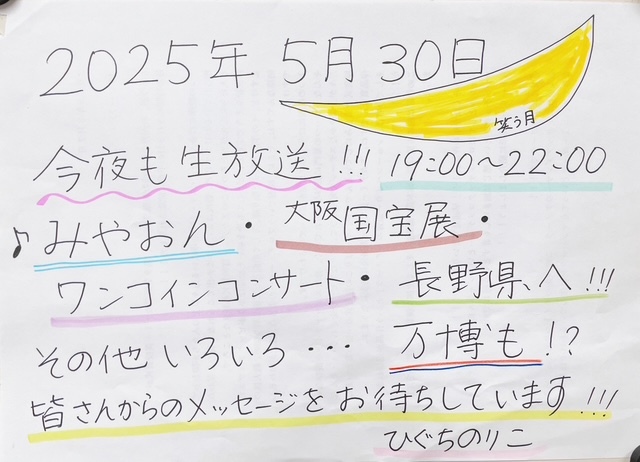 2025年 5月 30日
笑う月
今夜も生放送!!! 19:00~22:00
♪みやおん・大阪国宝展・
ワンコインコンサート・長野県へ!!!
その他いろいろ… 万博も!?
皆さんからのメッセージをお待ちしています!!!
ひぐちのりこ